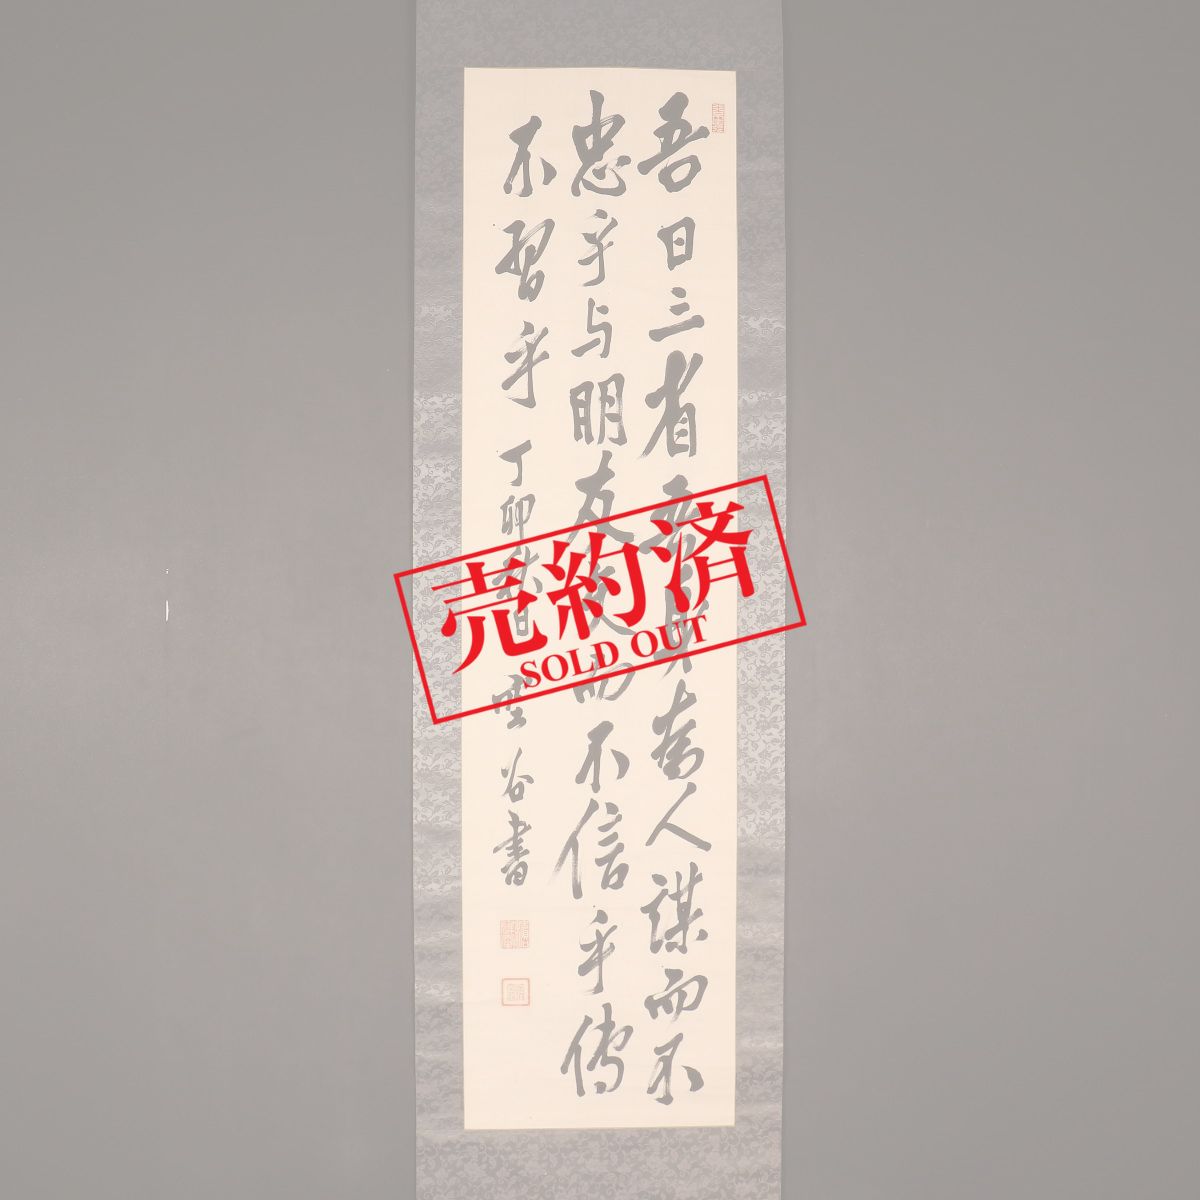 吾日三省吾身為人謀而不
忠乎与朋友交而不信乎傳
不習乎 丁卯 谷書
売約済
SOLD OUT